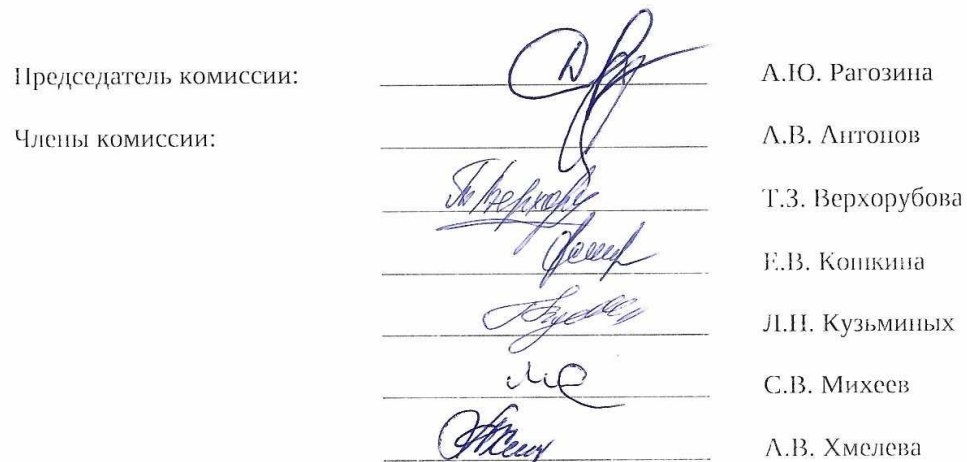 Председатель комиссии: А.Ю. Рагозина
Члены комиссии: А.В. Антонов
Т.З. Верхорубова
Е.В. Кошкина
Л.Н. Кузьминых
С.В. Михеев
А.В. Хмелева